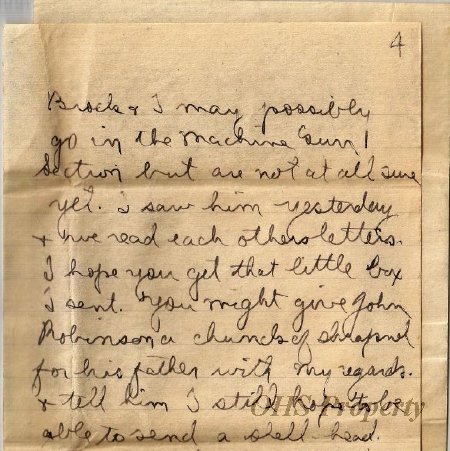 4
Brock & I may possibly
go in the Machine Gun
Section but are not at all sure
yet. I saw him yesterday
& we read each others letters.
I hope you get that little box
I sent. You might give John
Robinson a chunck of shrapnel
for his father with my regards.
& tell him I still hope to be
able to send a shell head.
OHS Property